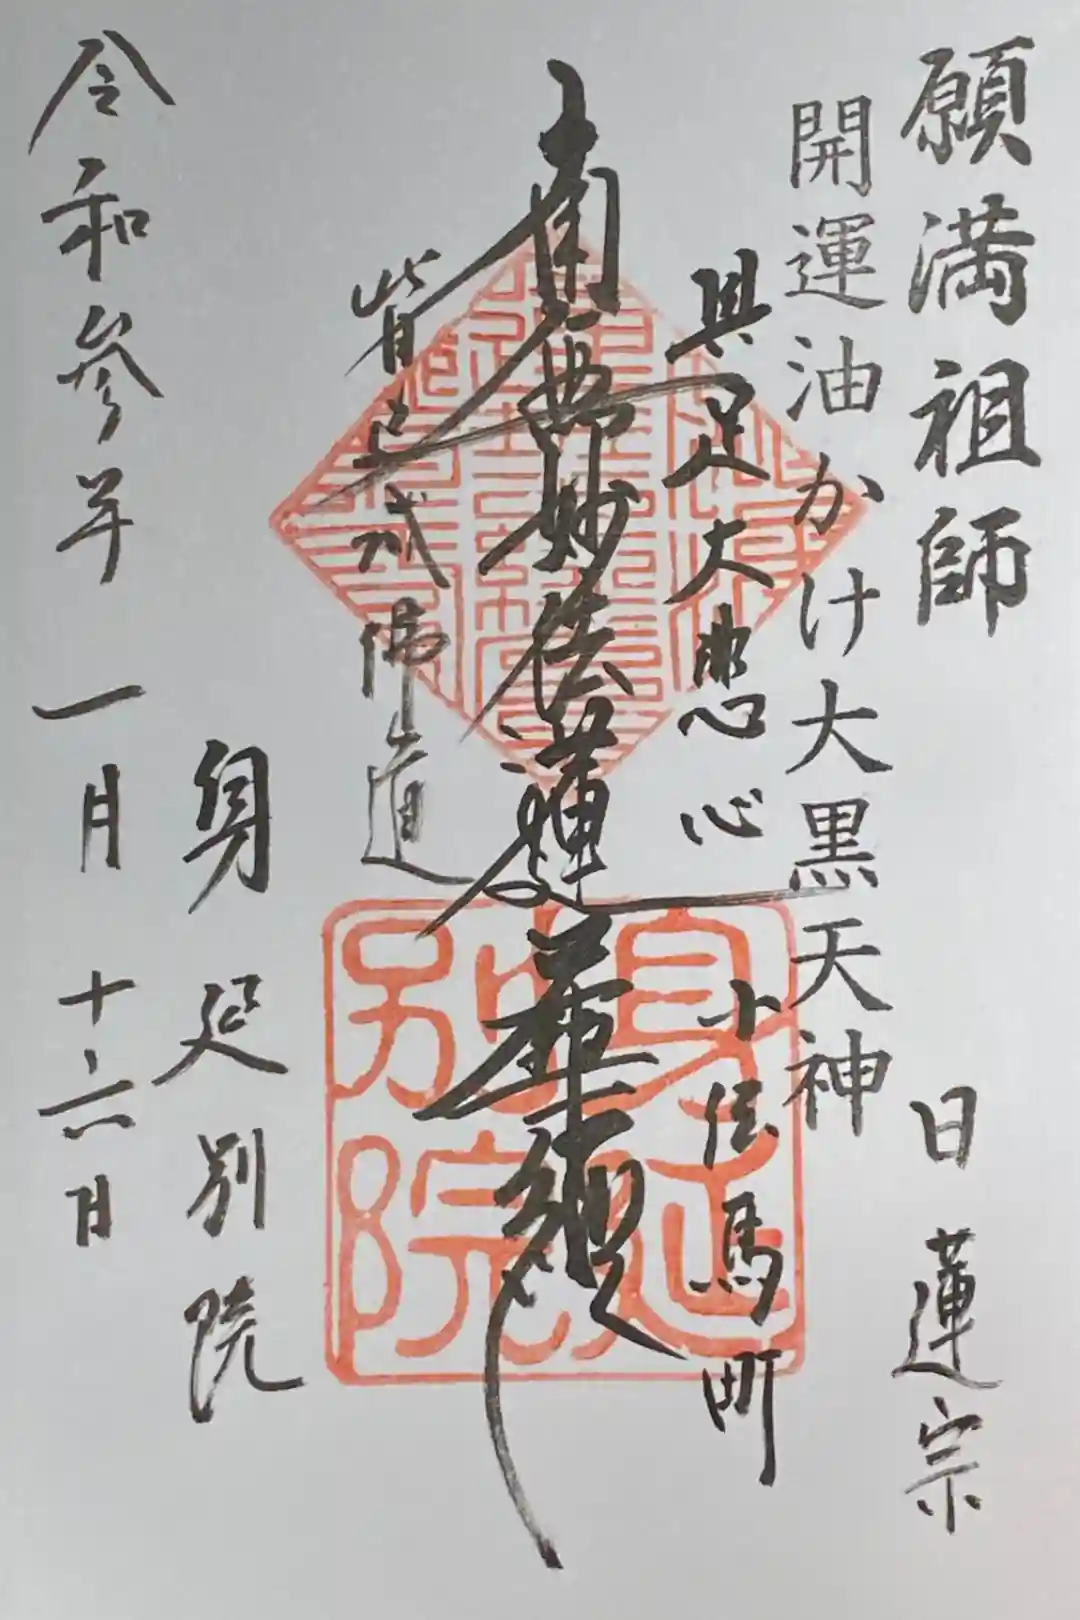 願満祖師
日蓮宗
開運油かけ大黒天神
具足大悲心
小伝馬町
南無妙法蓮華経
皆已成佛道
身延別院
令和参年 一月 十六日
身延別院